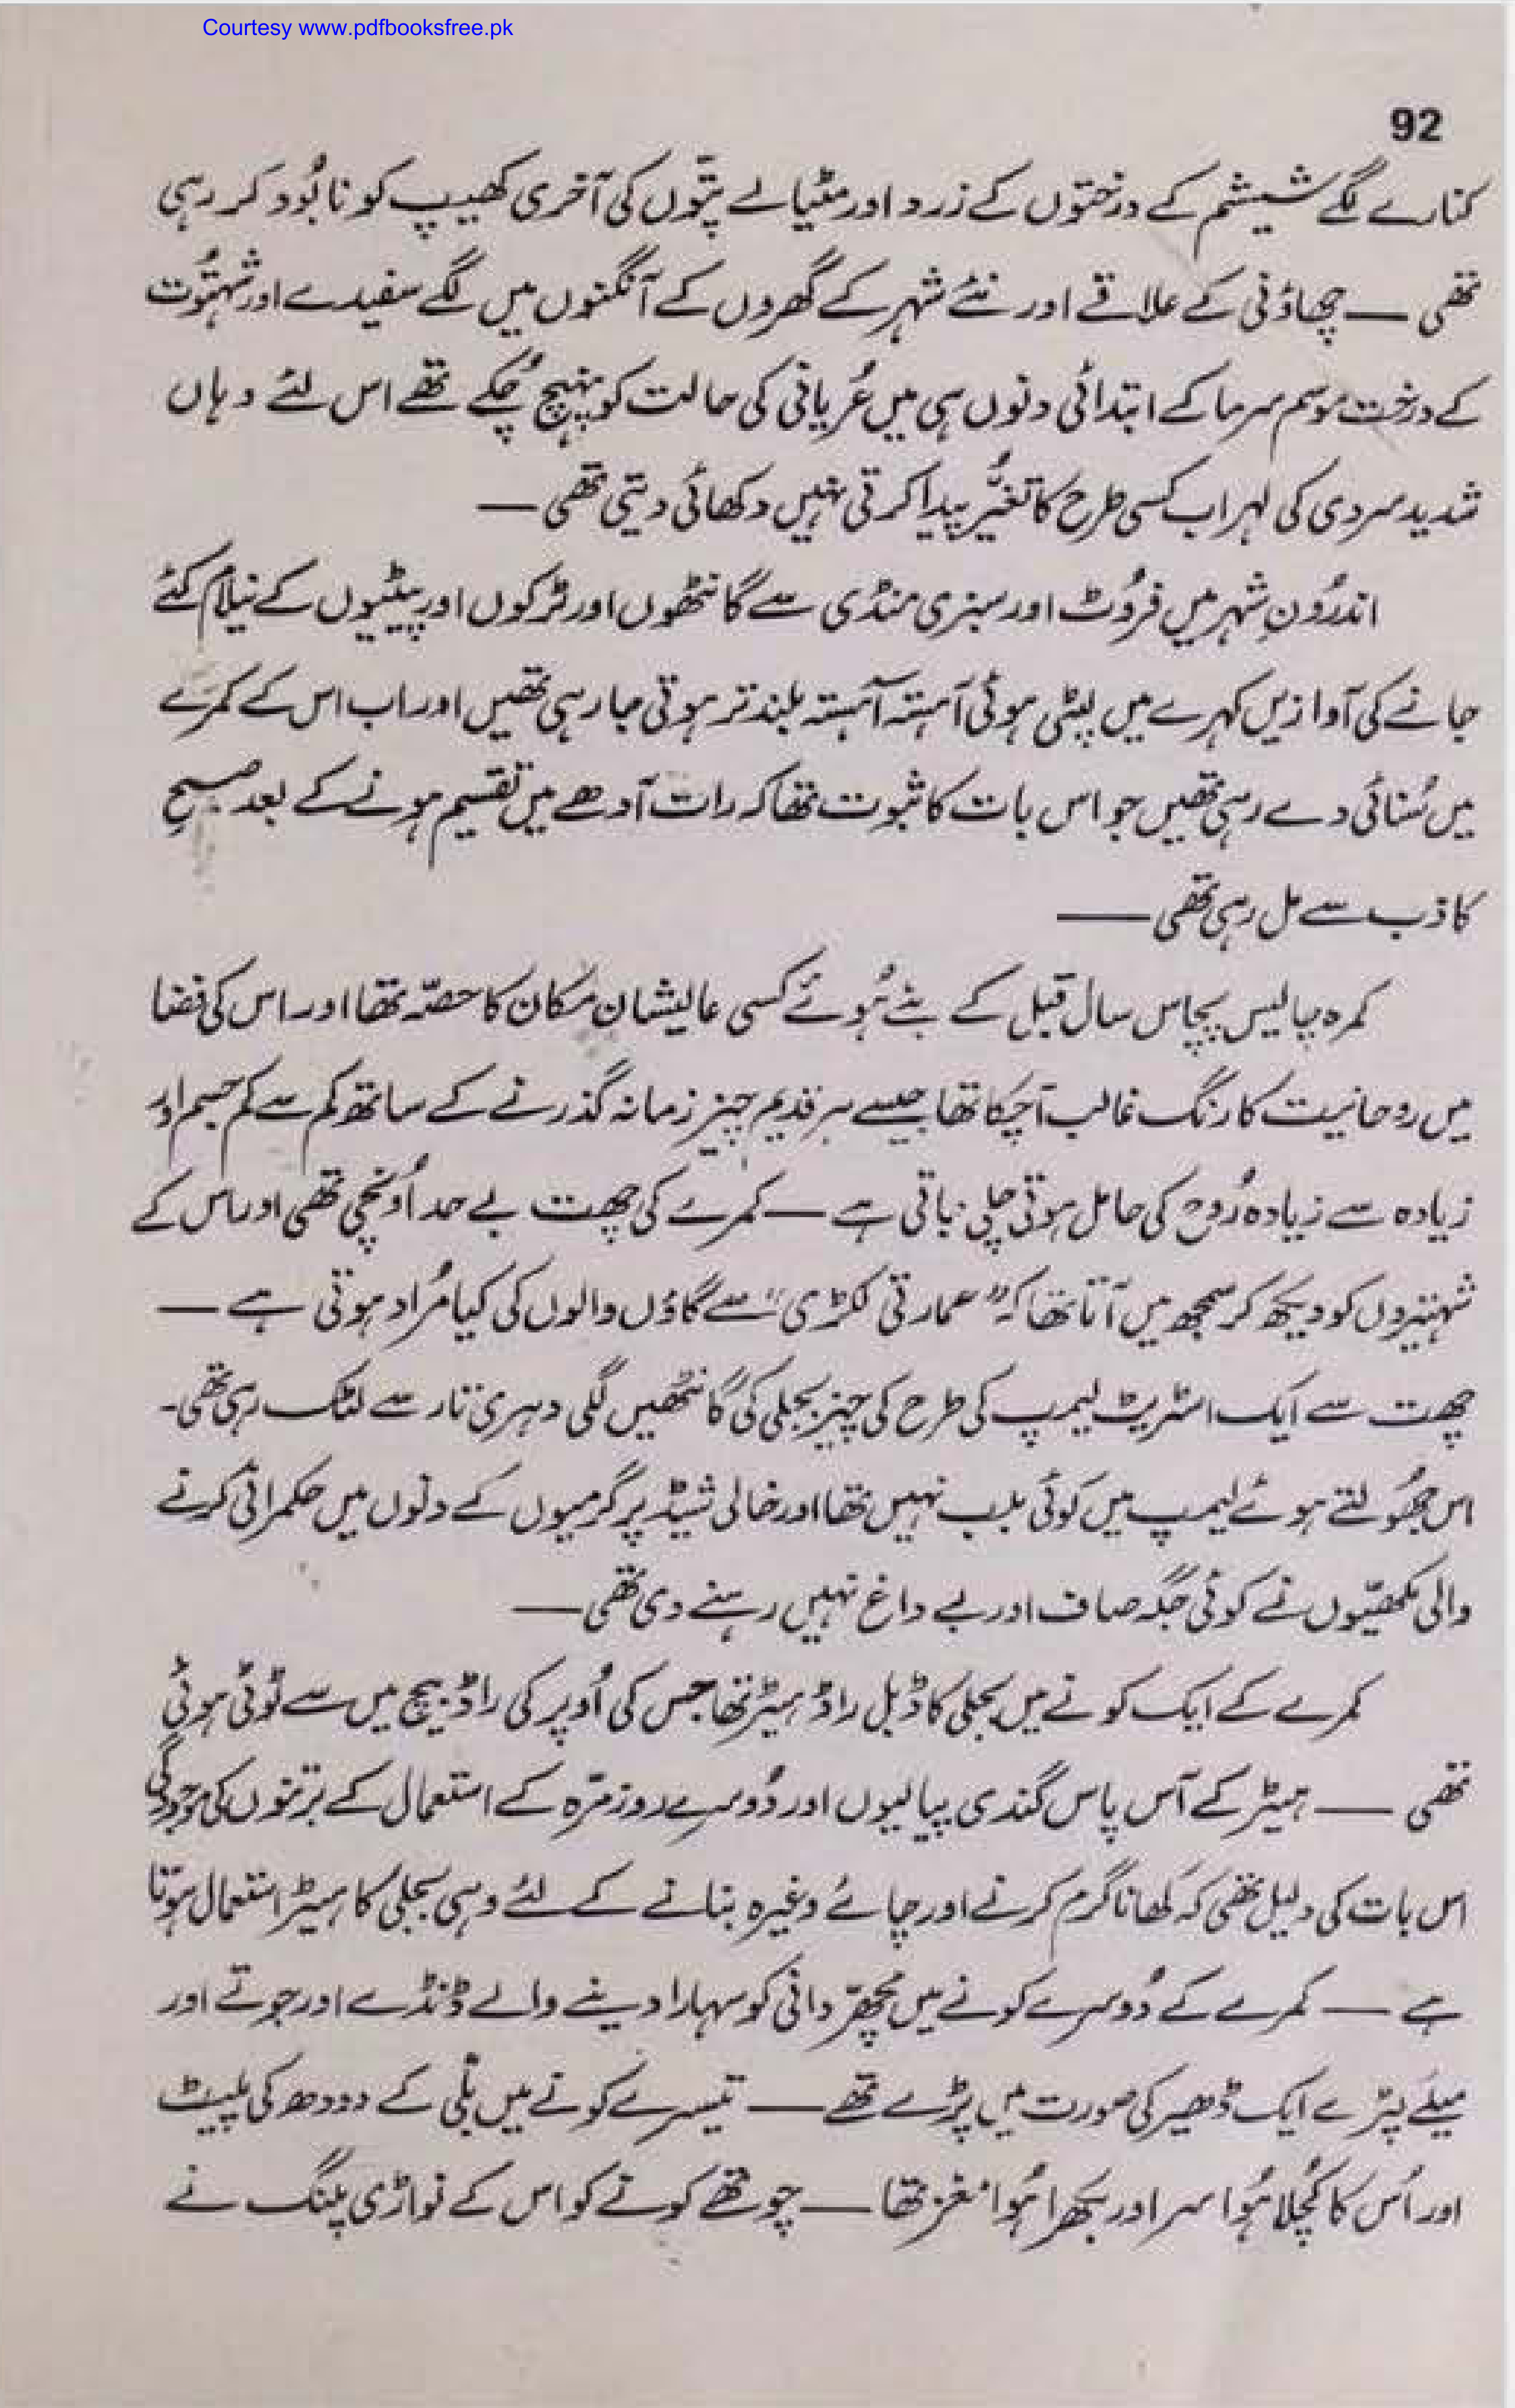 Courtesy www.pdfbooksfree.pk
92
کنارے لگے شیشم کے درختوں کے زرد اور مٹیالے پتّوں کی آخری کھیپ کو نابُود کر رہی
تھی — چھاؤنی کے علاقے اور نئے شہر کے گھروں کے آنگنوں میں لگے سفیدے اور شہتُوت
کے درخت موسم سرما کے ابتدائی دنوں ہی میں عُریانی کی حالت کو پہنچ چُکے تھے اس لئے وہاں
شدید سردی کی لہر اب کسی طرح کا تغیُّر پیدا کرتی نہیں دکھائی دیتی تھی —
اندرُونِ شہر میں فرُوٹ اور سبزی منڈی سے گانٹھوں اور ٹرکوں اور پیٹیوں کے نیلام کئے
جانے کی آوازیں کہرے میں لپٹی ہوئی آہستہ آہستہ بلند تر ہوتی جا رہی تھیں اور اب اس کے کمرے
میں سُنائی دے رہی تھیں جو اس بات کا ثبوت تھا کہ رات آدھے میں تقسیم ہونے کے بعد صبحِ
کاذب سے مل رہی تھی —
کمرہ چالیس پچاس سال قبل کے بنے ہُوئے کسی عالیشان مکان کا حصّہ تھا اور اس کی فضا
میں روحانیت کا رنگ غالب آچکا تھا جیسے ہر قدیم چیز زمانہ گذرنے کے ساتھ کم سے کم جسم اور
زیادہ سے زیادہ رُوح کی حامل ہوتی چلی جاتی ہے — کمرے کی چھت بے حد اُونچی تھی اور اس کے
شہتیروں کو دیکھ کر سمجھ میں آتا تھا کہ "عمارتی لکڑی" سے گاؤں والوں کی کیا مُراد ہوتی ہے —
چھت سے ایک اسٹریٹ لیمپ کی طرح کی چیز بجلی کی گانٹھیں لگی دہری تار سے لٹک رہی تھی۔
اس جھُولتے ہوئے لیمپ میں کوئی بلب نہیں تھا اور خالی شیڈ پر گرمیوں کے دنوں میں حکمرانی کرنے
والی مکھیّوں نے کوئی جگہ صاف اور بے داغ نہیں رہنے دی تھی —
کمرے کے ایک کونے میں بجلی کا ڈبل راڈ ہیٹر تھا جس کی اُوپر کی راڈ بیچ میں سے ٹوٹی ہوئی
تھی — ہیٹر کے آس پاس گندی پیالیوں اور دُوسرے روزمرّہ کے استعمال کے برتنوں کی موجودگی
اس بات کی دلیل تھی کہ کھانا گرم کرنے اور چائے وغیرہ بنانے کے لئے وہی بجلی کا ہیٹر استعمال ہوتا
ہے — کمرے کے دُوسرے کونے میں مچھّر دانی کو سہارا دینے والے ڈنڈے اور جوتے اور
میلے کپڑے ایک ڈھیر کی صورت میں پڑے تھے — تیسرے کونے میں بلّی کے دودھ کی پلیٹ
اور اُس کا کُچلا ہُوا سر اور بکھرا ہُوا مغز تھا — چوتھے کونے کو اس کے نواڑی پلنگ نے